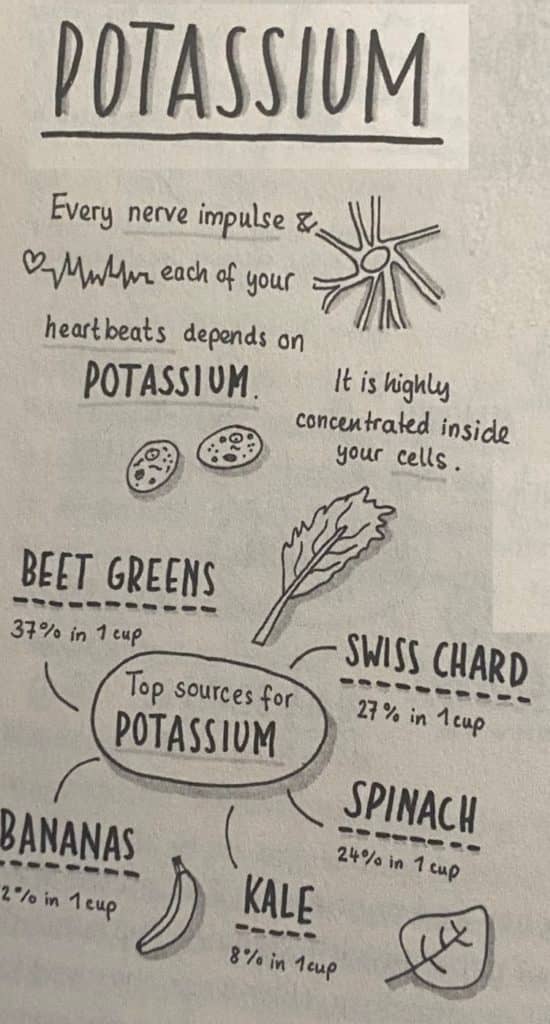 POTASSIUM
Every nerve impulse &
each of your
heartbeats depends on
POTASSIUM.
It is highly
concentrated inside
your cells.
BEET GREENS
37% in 1 cup
SWISS CHARD
27% in 1 cup
Top sources for
POTASSIUM
SPINACH
24% in 1 cup
BANANAS
2% in 1 cup
KALE
8% in 1 cup